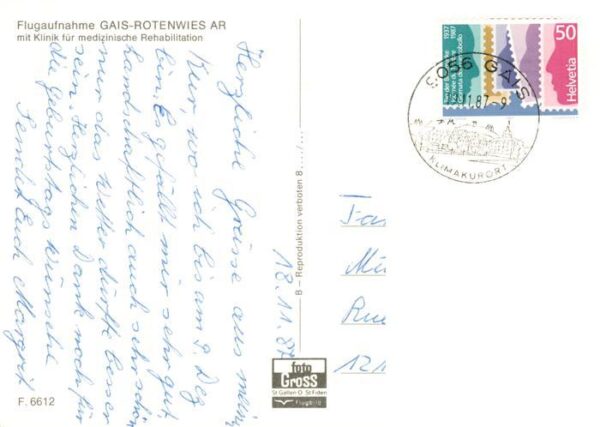 Flugaufnahme GAIS-ROTENWIES AR
mit Klinik für medizinische Rehabilitation
Herzliche Grüsse aus meiner
Kur wo ich bis am 9. Dez
bin. Es gefällt mir sehr gut
landschaftlich auch sehr schön
nur das Wetter dürfte besser
sein. Herzlichen Dank noch für
die Geburtstags wünsche
Sendet Euch Margrit
18.11.87
B – Reproduktion verboten B
foto
Gross
St Gallen O St Fiden
Flugbild
F. 6612
1937
1987
Tag der Briefmarke
Journée du timbre
Giornata del francobollo
50
Helvetia
9056 GAIS
11.87-9
KLIMAKURORT
Fa
Mü
Ru
121